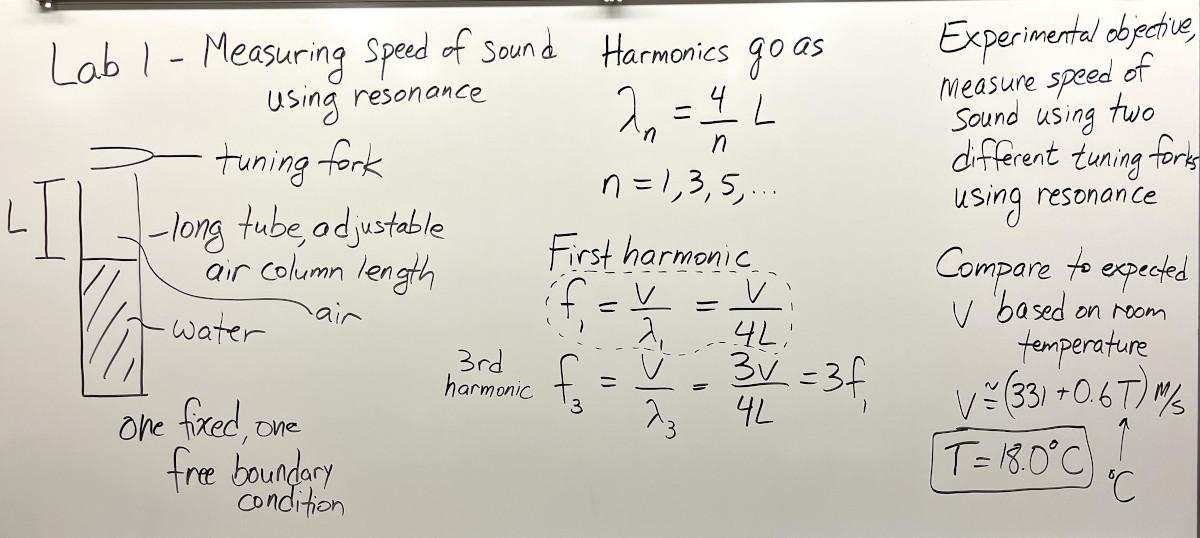 Lab 1 - Measuring speed of sound
using resonance
tuning fork
L
long tube, adjustable
air column length
air
water
one fixed, one
free boundary
condition
Harmonics go as
λₙ = 4/n L
n = 1, 3, 5, ...
First harmonic
f₁ = v/λ₁ = v/4L
3rd
harmonic
f₃ = v/λ₃ = 3v/4L = 3f₁
Experimental objective,
measure speed of
sound using two
different tuning forks
using resonance
Compare to expected
v based on room
temperature
v ≅ (331 + 0.6T) m/s
T = 18.0°C
°C